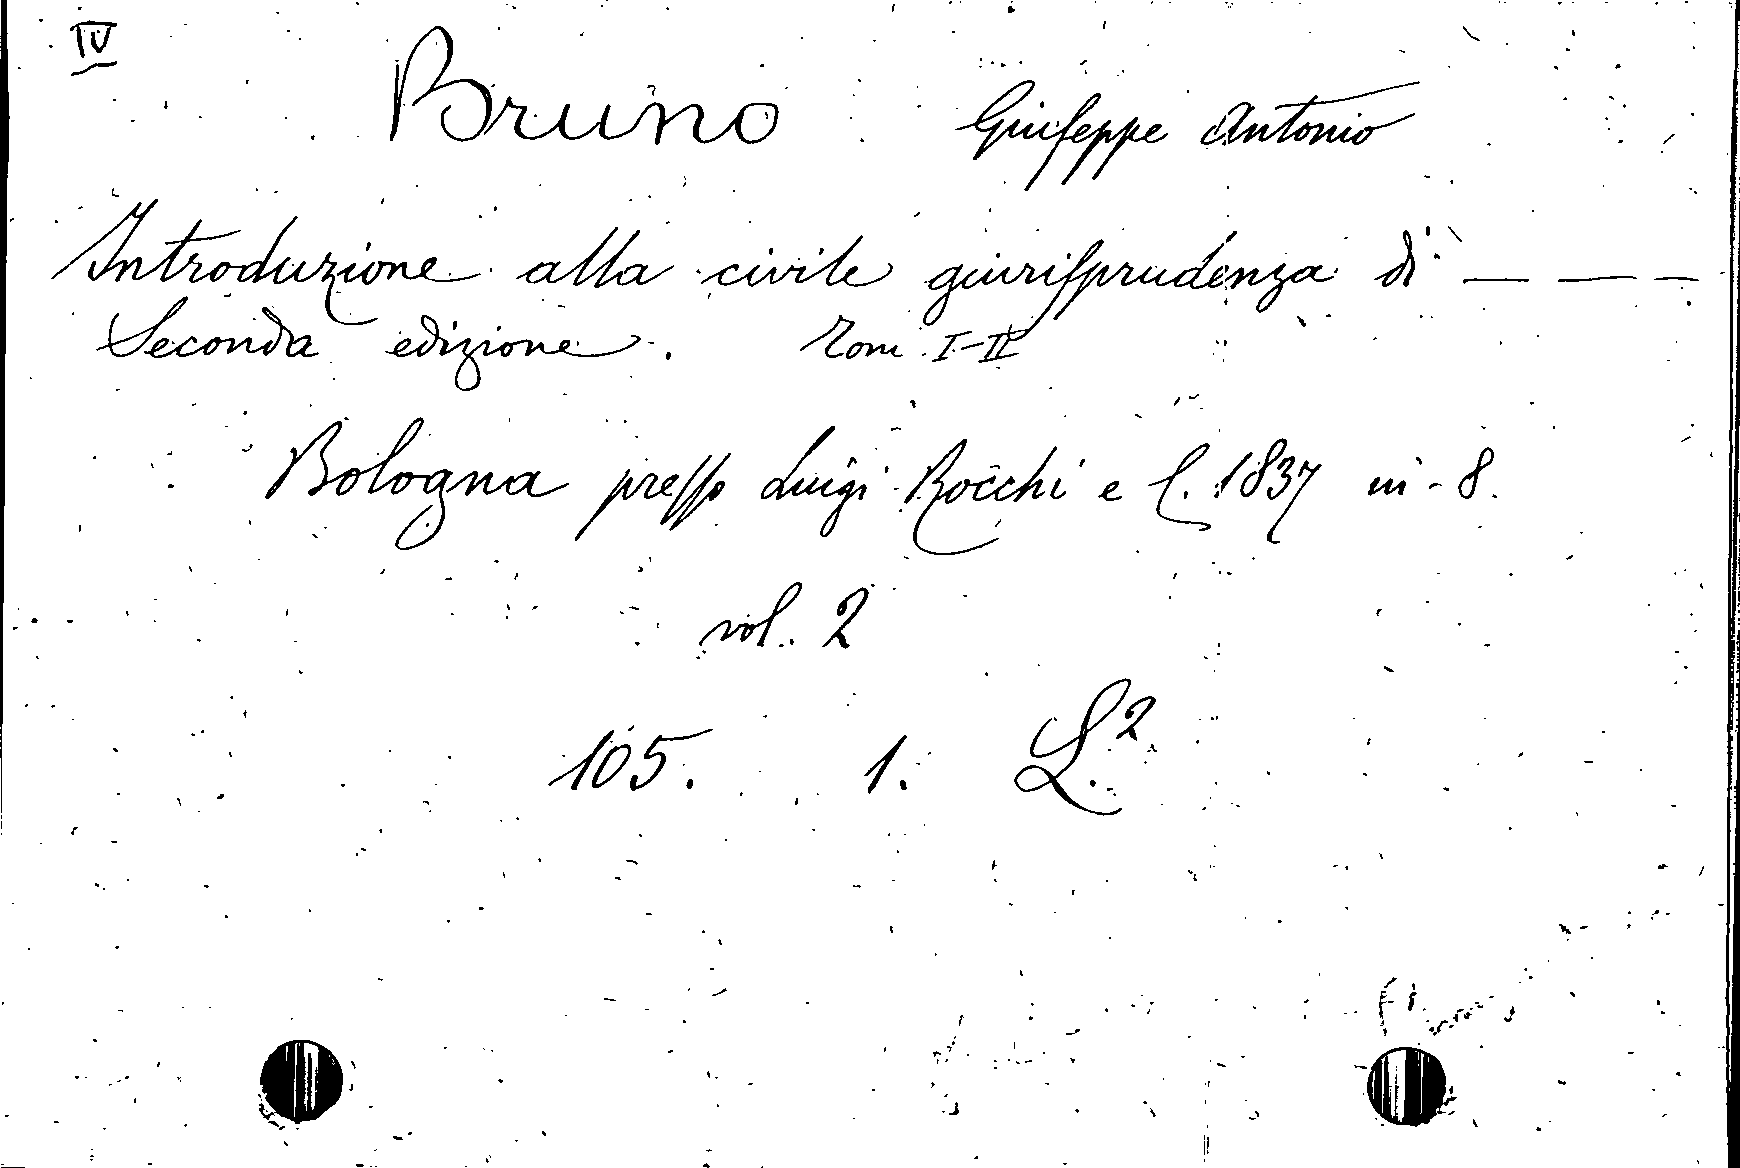 IV
Bruno Giuseppe Antonio
Introduzione alla civile giurisprudenza di — — —
Seconda edizione. Tom I-II
Bologna presso Luigi Rocchi e C. 1837 in-8.
vol. 2
105. 1. L.²